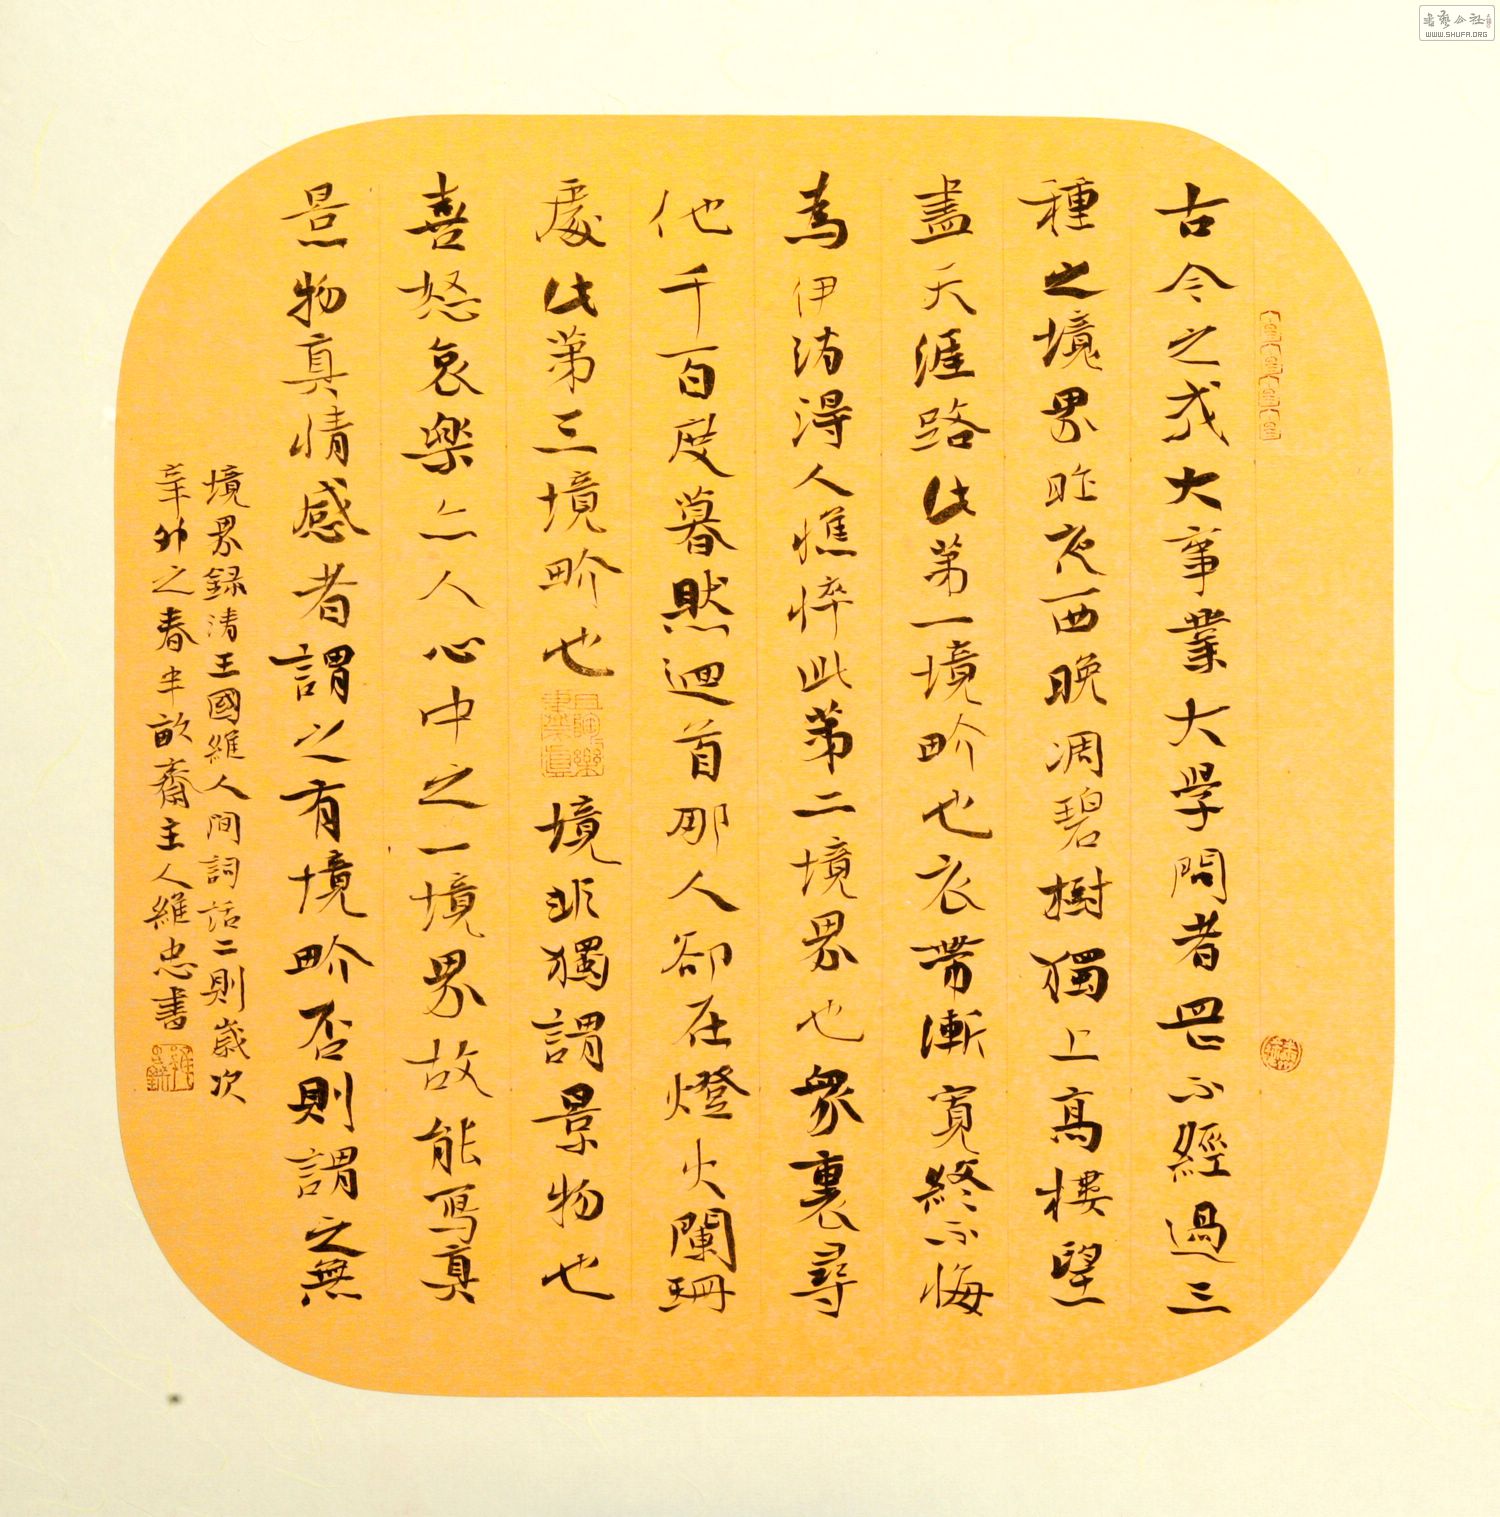 古今之成大事業大學問者罔不經過三
種之境界昨夜西晚凋碧樹獨上高樓望
盡天涯路此第一境界也衣帶漸寬終不悔
為伊消得人憔悴此第二境界也衆裏尋
他千百度暮然迴首那人卻在燈火闌珊
處此第三境界也境非獨謂景物也
喜怒哀樂亦人心中之一境界故能寫真
景物真情感者謂之有境界否則謂之無
境界録清王國維人間詞話二則歲次
辛卯之春半畝齋主人維忠書
書藝公社
WWW.SHUFA.ORG